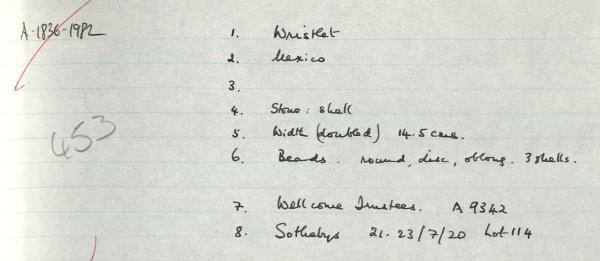 A·1836-1982
1. Wristlet
2. Mexico
3.
4. Stone : shell
5. Width (doubled) 14.5 cms.
6. Beads. round, disc, oblong. 3 shells.
453
7. Wellcome Trustees. A 9342
8. Sothebys 21-23/7/20 Lot 114